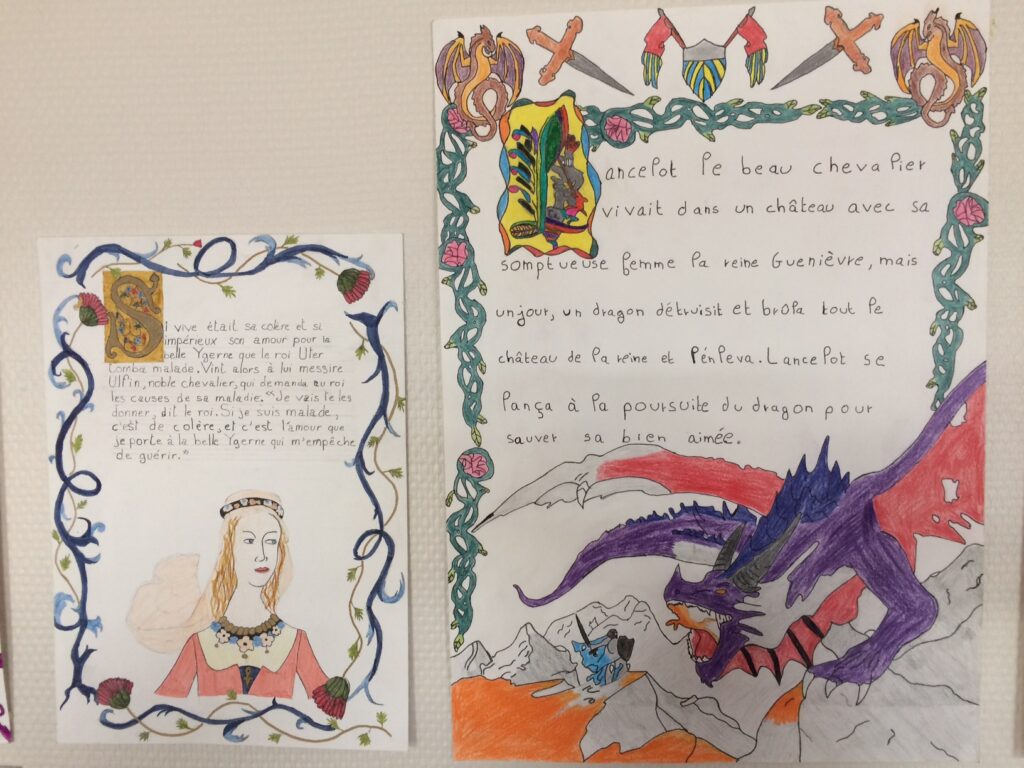 Si vive était sa colère et si
impérieux son amour pour la
belle Ygerne que le roi Uter
tomba malade. Vint alors à lui messire
Ulfin, noble chevalier, qui demanda au roi
les causes de sa maladie. "Je vais te les
donner, dit le roi. Si je suis malade,
c'est de colère, et c'est l'amour que
je porte à la belle Ygerne qui m'empêche
de guérir."
Lancelot le beau chevalier
vivait dans un château avec sa
somptueuse femme la reine Guenièvre, mais
un jour, un dragon détruisit et brûla tout le
château de la reine et l'énleva. Lancelot se
lança à la poursuite du dragon pour
sauver sa bien aimée.